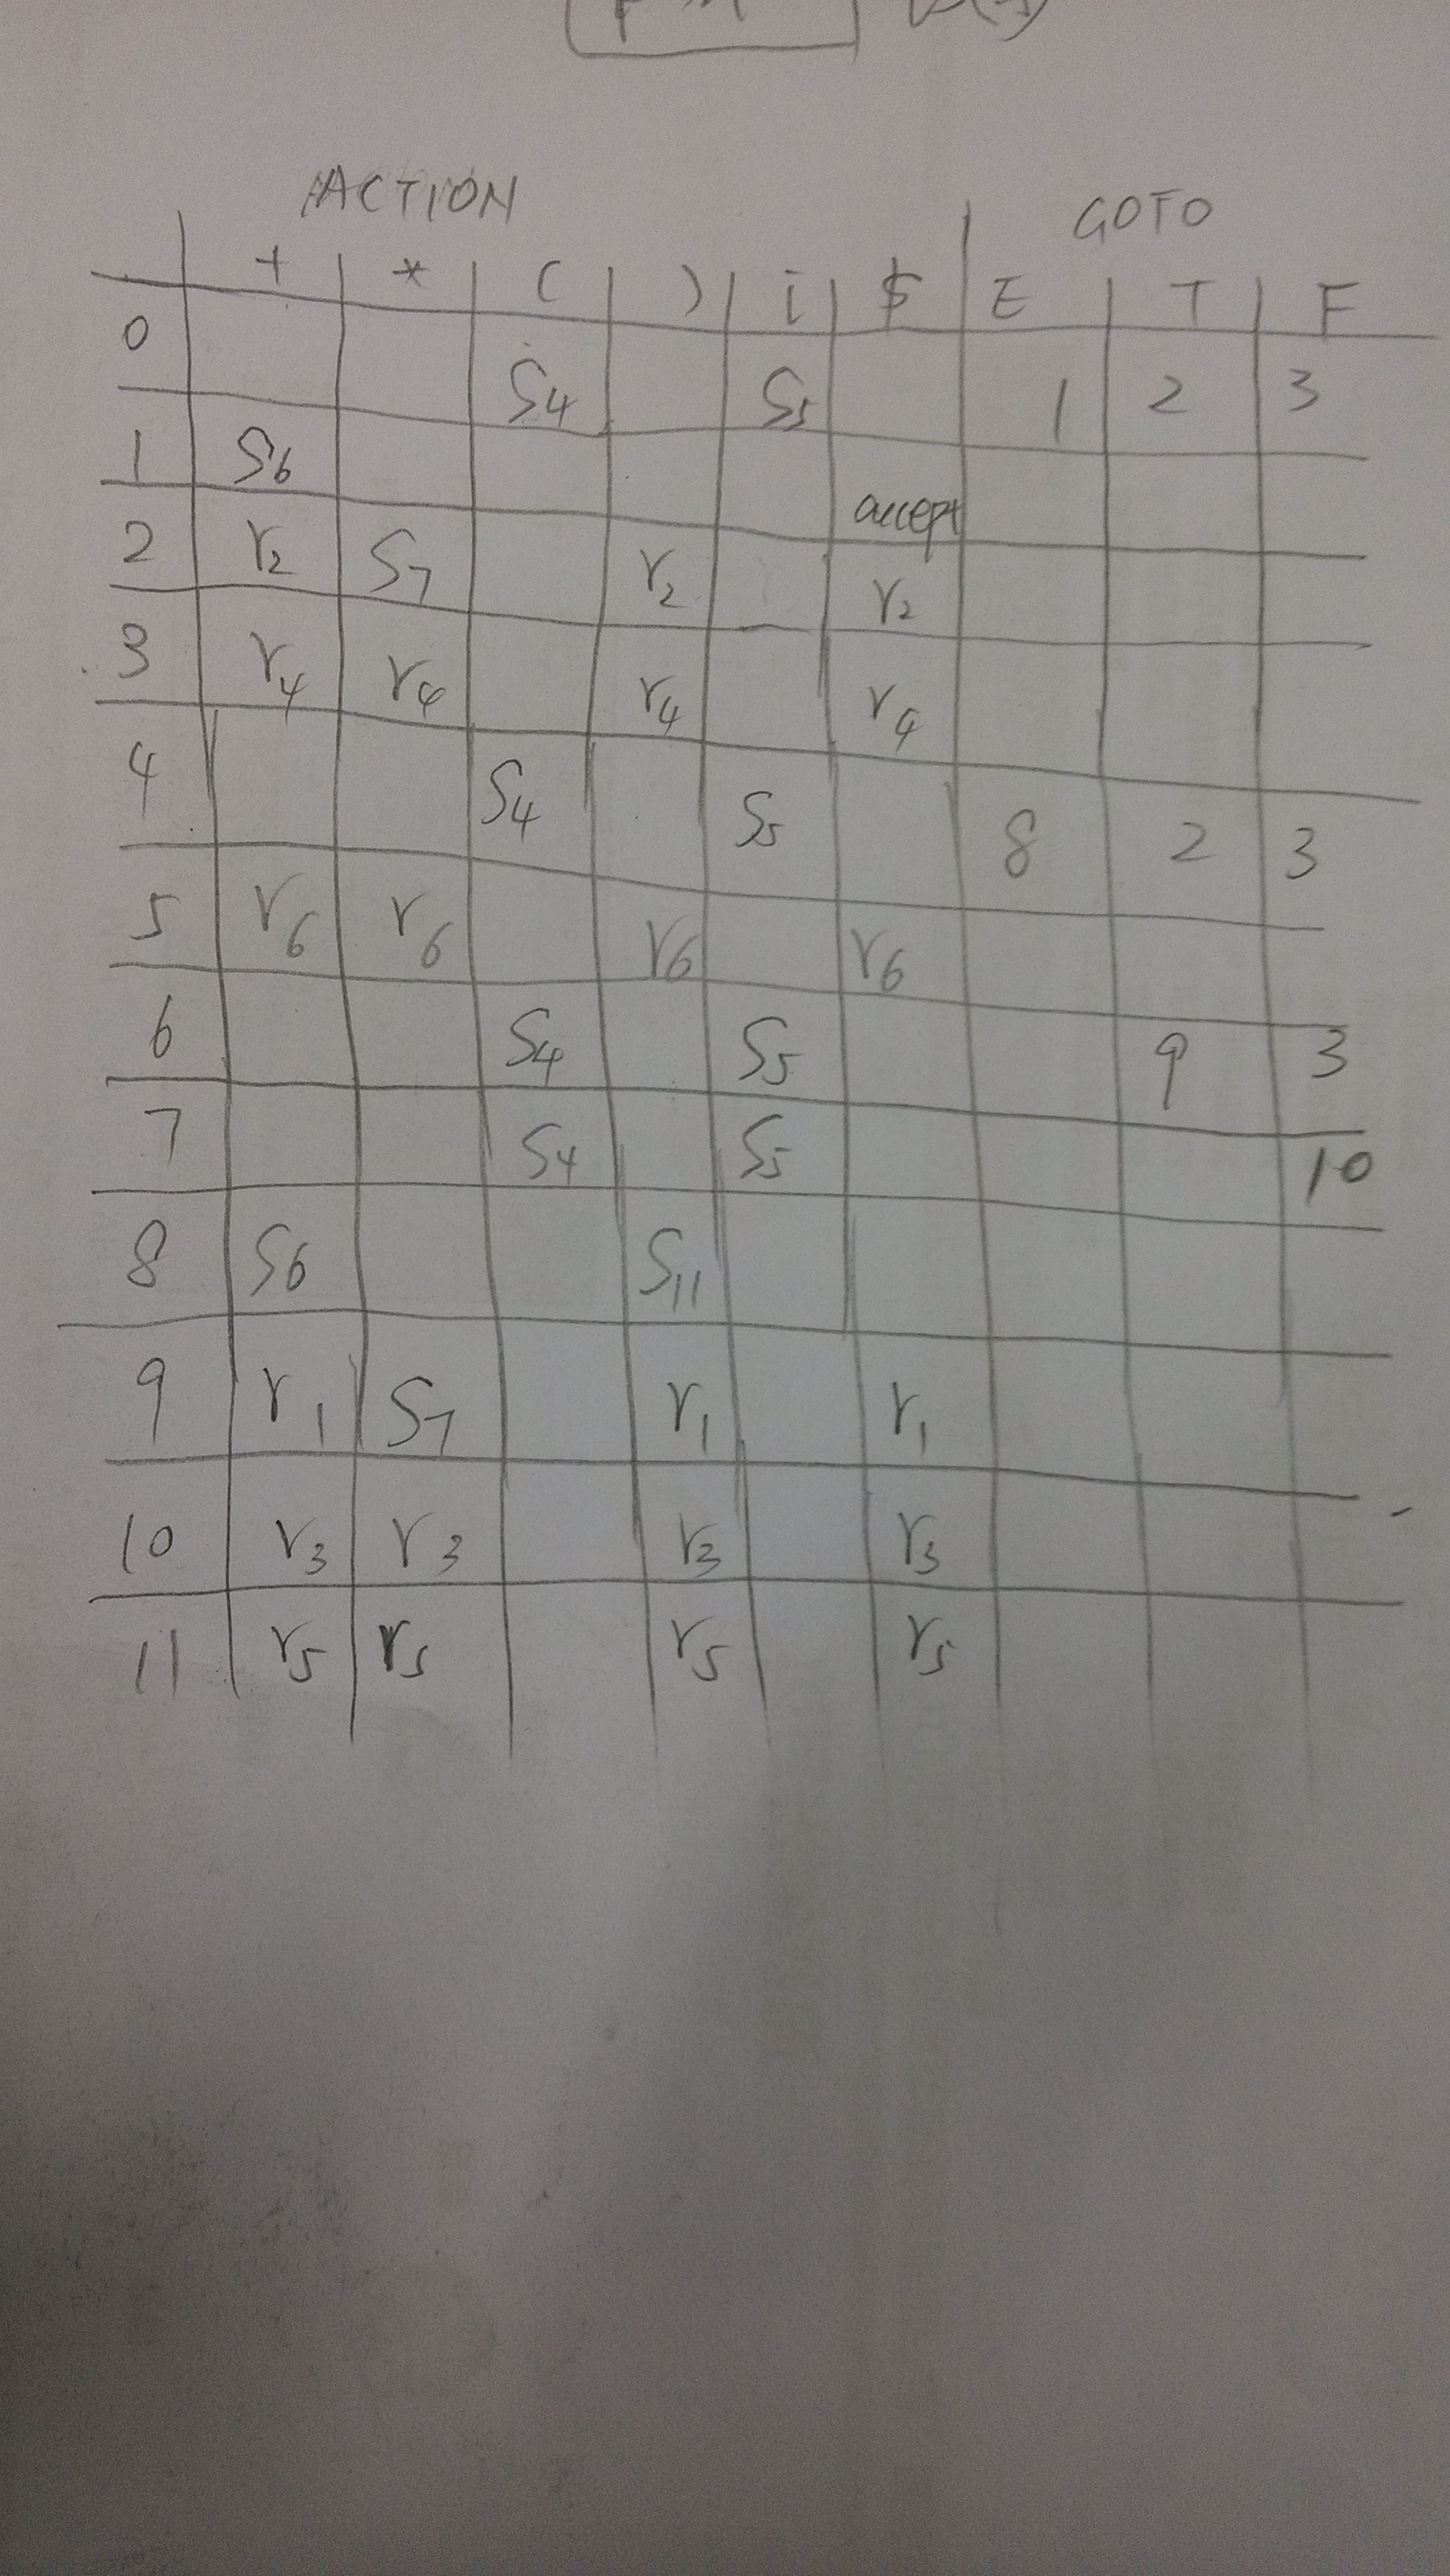 ACTION GOTO
+ * ( ) i $ E T F
0 S4 S5 1 2 3
1 S6 accept
2 r2 S7 r2 r2
3 r4 r4 r4 r4
4 S4 S5 8 2 3
5 r6 r6 r6 r6
6 S4 S5 9 3
7 S4 S5 10
8 S6 S11
9 r1 S7 r1 r1
10 r3 r3 r3 r3
11 r5 r5 r5 r5